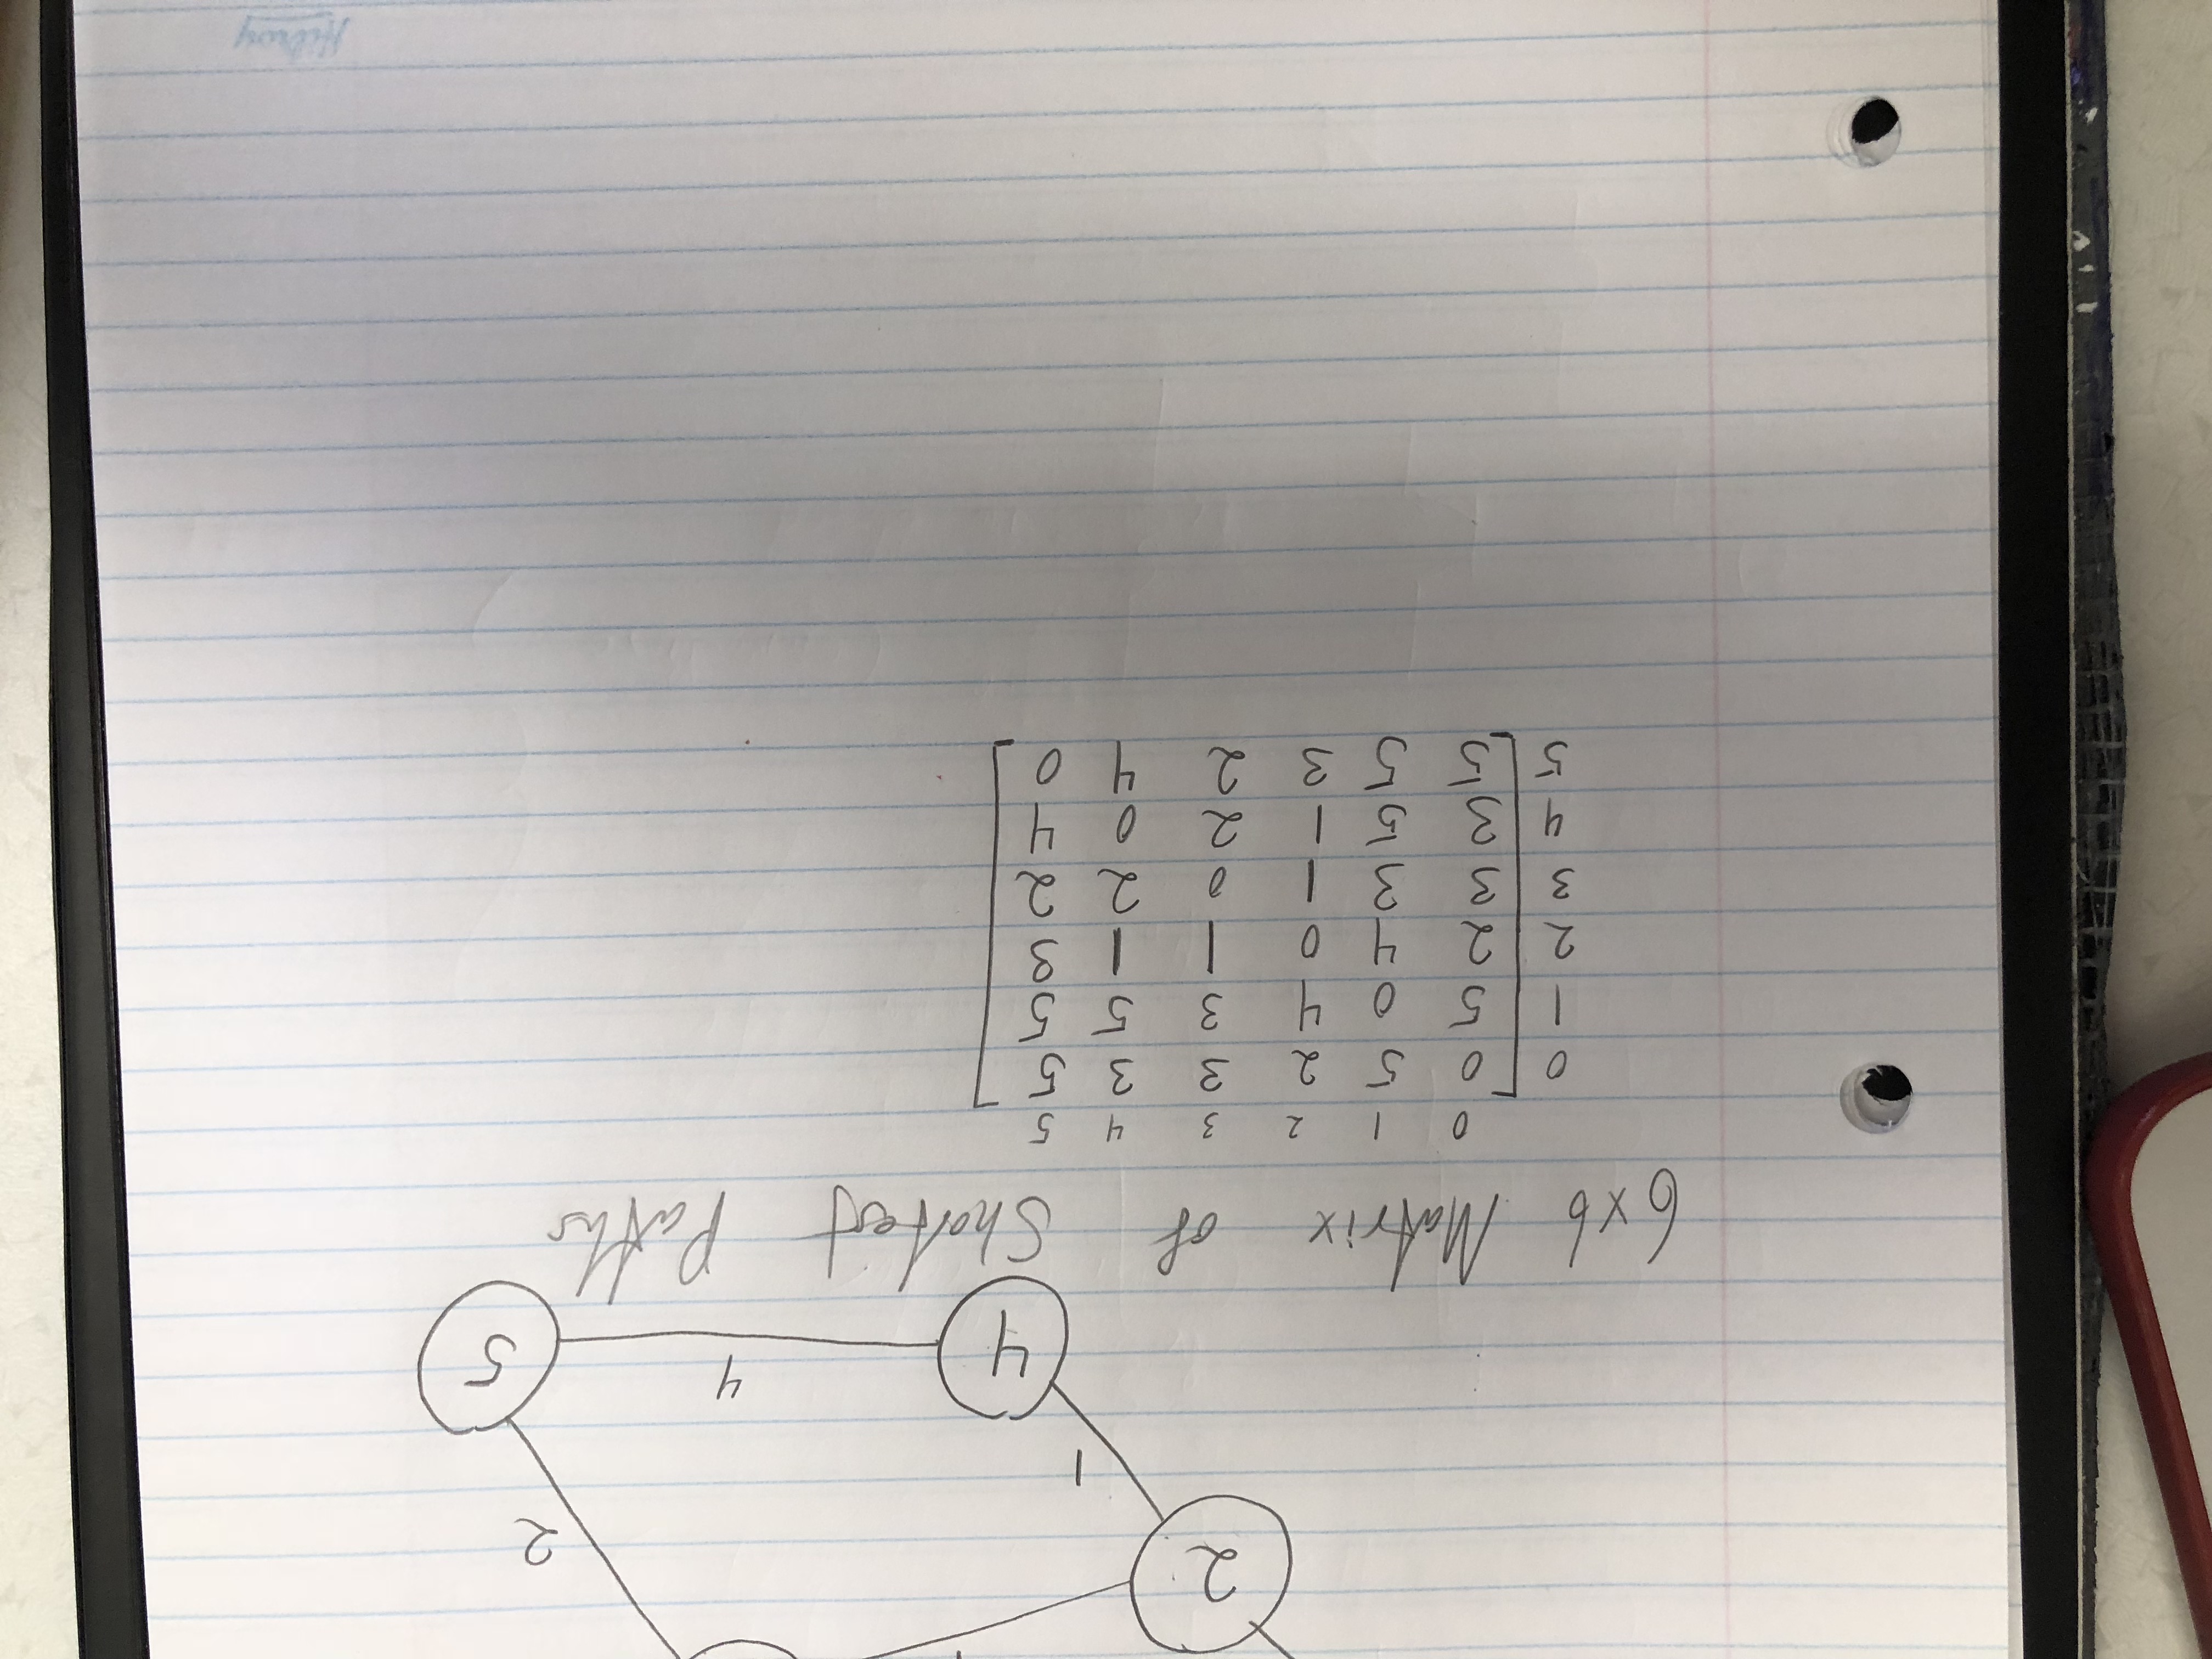 2
2
1
4
4
5
6x6 Matrix of Shortest Paths
0 1 2 3 4 5
0 0 5 2 3 3 5
1 5 0 4 3 5 5
2 2 4 0 1 1 3
3 3 3 1 0 2 2
4 3 5 1 2 0 4
5 5 5 3 2 4 0
Hilroy